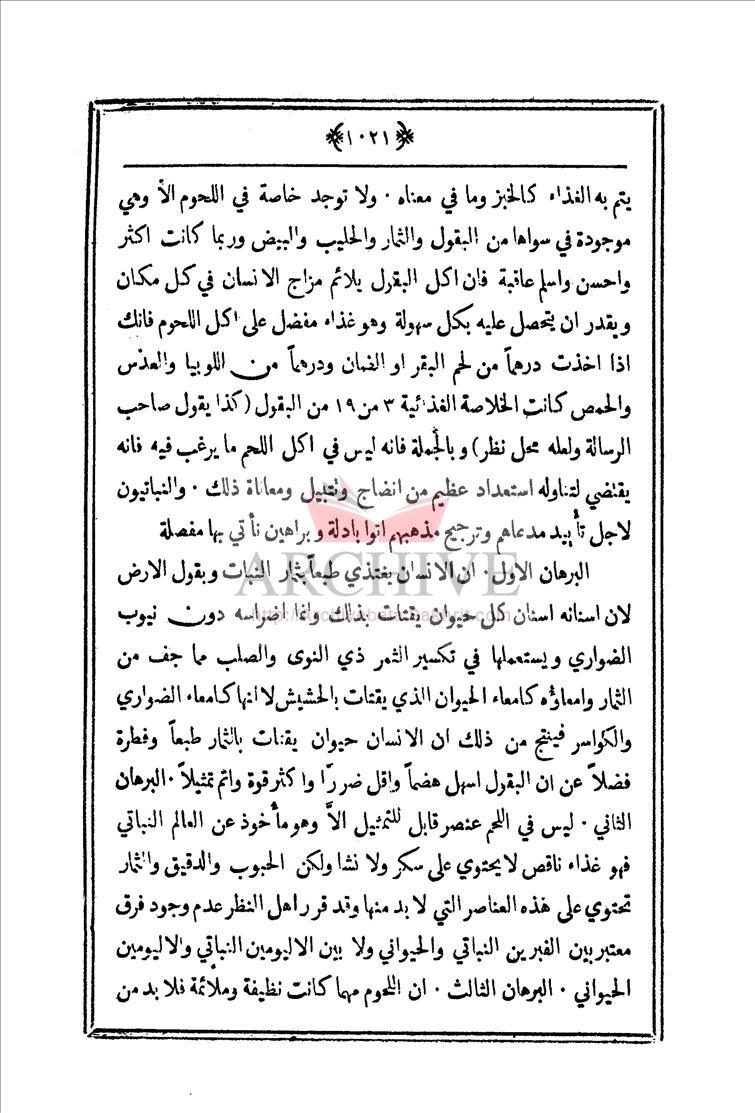 ﴿١٠٢١﴾
يتم به الغذاء كالخبز وما في معناه ٠ ولا توجد خاصة في اللحوم الاَّ وهي
موجودة في سواها من البقول والثمار والحليب والبيض وربما كانت اكثر
واحسن واسلم عاقبة فان اكل البقول يلائم مزاج الانسان في كل مكان
ويقدر ان يتحصل عليه بكل سهولة وهو غذاء مفضل على اكل اللحوم فانك
اذا اخذت درهماً من لحم البقر او الضان ودرهماً من اللوبيا والعدس
والحمص كانت الخلاصة الغذائية ٣ من ١٩ من البقول (كذا يقول صاحب
الرسالة ولعله محل نظر) وبالجُملة فانه ليس في اكل اللحم ما يرغب فيه فانه
يقتضي لتناوله استعداد عظيم من انضاج وتتبيل ومعاناة ذلك ٠ والنباتيون
لاجل تأييد مدعاهم وترجيح مذهبهم اتوا بادلة وبراهين نأتي بها مفصلة
البرهان الاول ٠ ان الانسان يغتذي طبعاً بثمار النبات وبقول الارض
لان اسنانه اسنان كل حيوان يقتات بذلك وانما اضراسه دون نيوب
الضواري ويستعملها في تكسير الثمر ذي النوى والصلب مما جف من
الثمار وامعاؤه كامعاء الحيوان الذي يقتات بالحشيش لا انها كامعاء الضواري
والكواسر فينتج من ذلك ان الانسان حيوان يقتات بالثمار طبعاً وفطرة
فضلاً عن ان البقول اسهل هضماً واقل ضررًا واكثر قوة واتم تمثيلاً ٠ البرهان
الثاني ٠ ليس في اللحم عنصر قابل للتمثيل الاَّ وهو مأخوذ عن العالم النباتي
فهو غذاء ناقص لا يحتوي على سكر ولا نشا ولكن الحبوب والدقيق والثمار
تحتوي على هذه العناصر التي لا بد منها وقد قرر اهل النظر عدم وجود فرق
معتبر بين الفبرين النباتي والحيواني ولا بين الاليومين النباتي والاليومين
الحيواني ٠ البرهان الثالث ٠ ان اللحوم مهما كانت نظيفة وملائمة فلا بد من
ARCHIVE